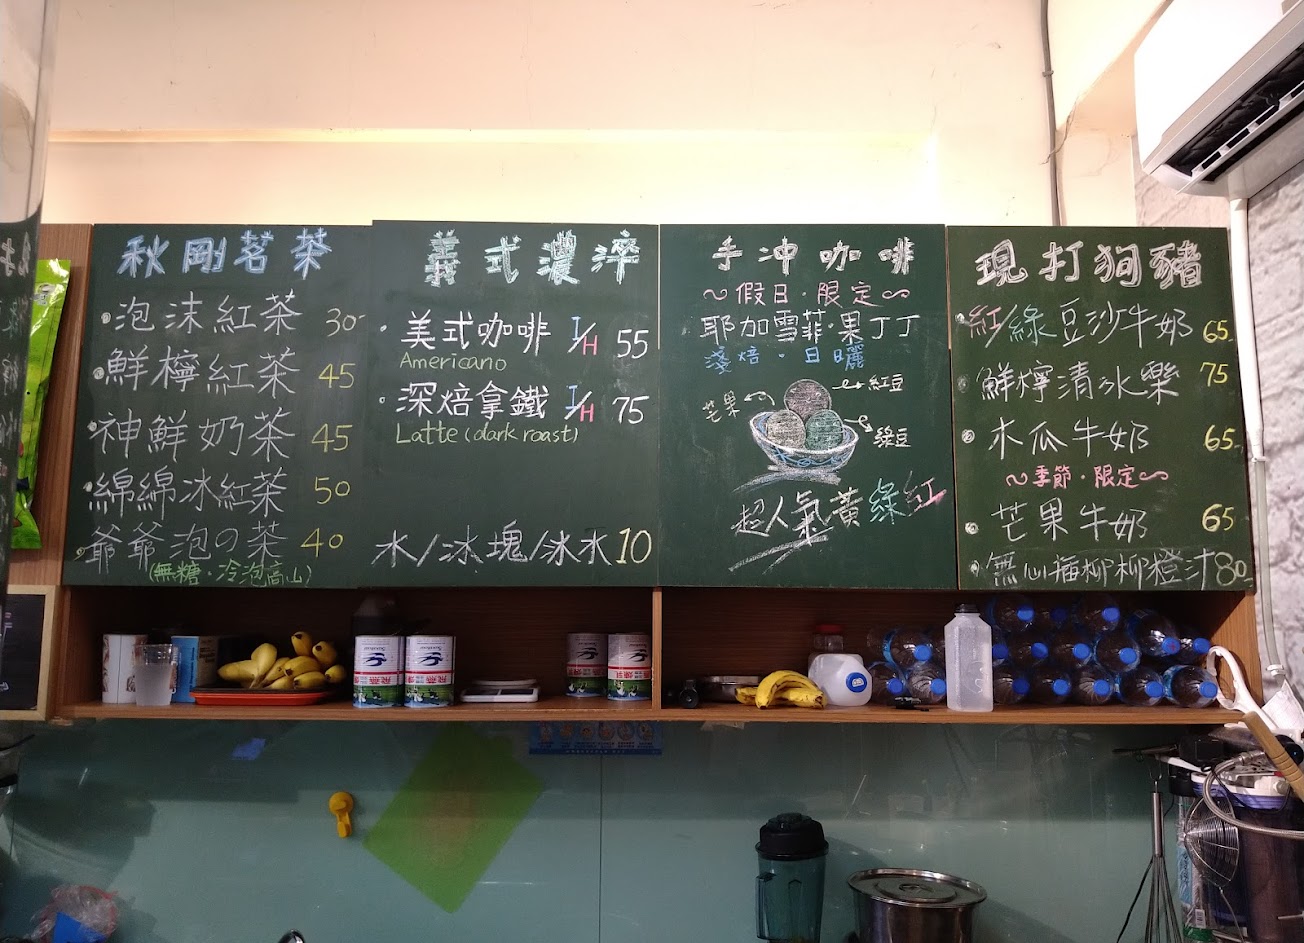 秋剛茗茶
泡沫紅茶 30-
鮮檸紅茶 45
神鮮奶茶 45
綿綿冰紅茶 50
爺爺泡の茶 40
(無糖·冷泡高山)
義式濃淬
美式咖啡 I/H 55
Americano
深焙拿鐵 I/H 75
Latte (dark roast)
水/冰塊/冰水 10
手沖咖啡
~假日·限定~
耶加雪菲·果丁丁
淺焙·日曬
紅豆
芒果
綠豆
超人氣黃綠紅
現打狗豬
紅/綠豆沙牛奶 65-
鮮檸清冰樂 75
木瓜牛奶 65-
~季節·限定~
芒果牛奶 65-
無心插柳柳橙汁 80-